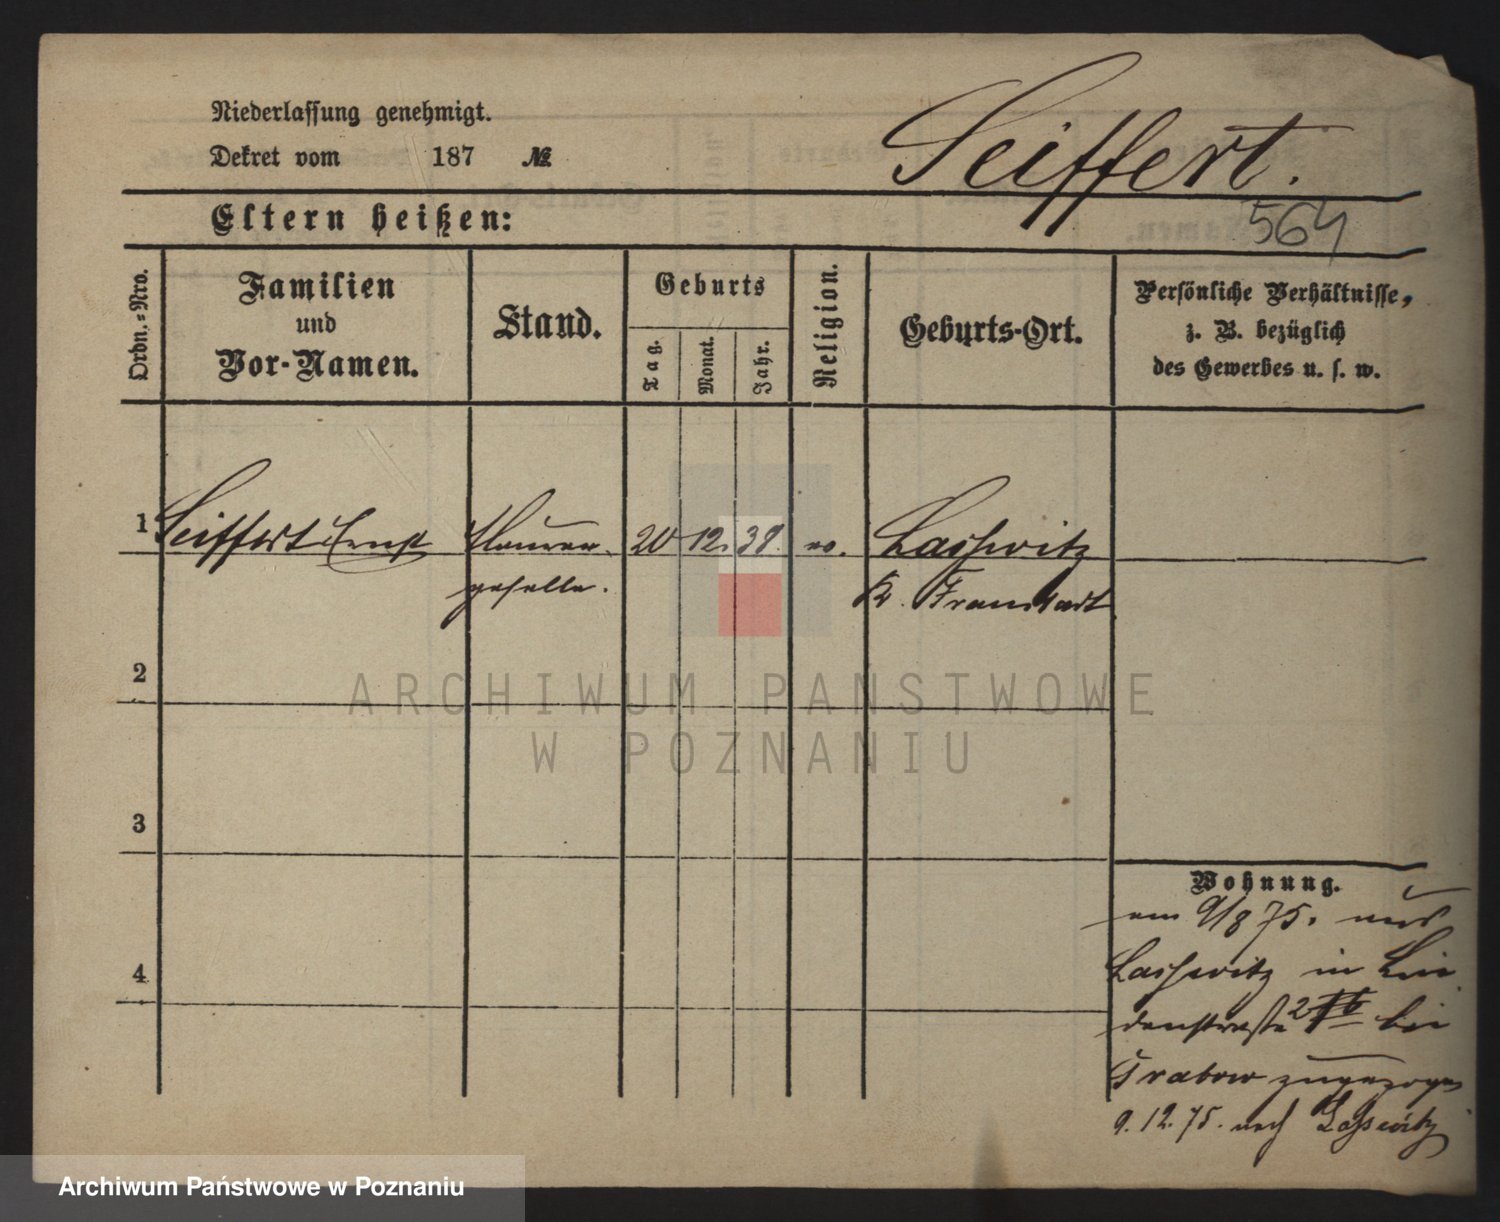 Niederlassung genehmigt.
Dekret vom 187 №
Seiffert.
Eltern heißen:
564
Ordn.-Nro.
Familien
und
Vor-Namen.
Stand.
Geburts
Tag.
Monat.
Jahr.
Religion.
Geburts-Ort.
Persönliche Verhältnisse,
z. B. bezüglich
des Gewerbes u. s. w.
1 Seiffert Ernst Maurer- 20 12. 39. ev. Lasswitz
geselle. Kr. Fraustadt
2
ARCHIWUM PAŃSTWOWE
W POZNANIU
3
Wohnung.
am 9/8 75. aus
Lasswitz in Lin
denstraße 2 bei
Grabow zugezogen
9.12.75. nach Lasswitz
4
Archiwum Państwowe w Poznaniu